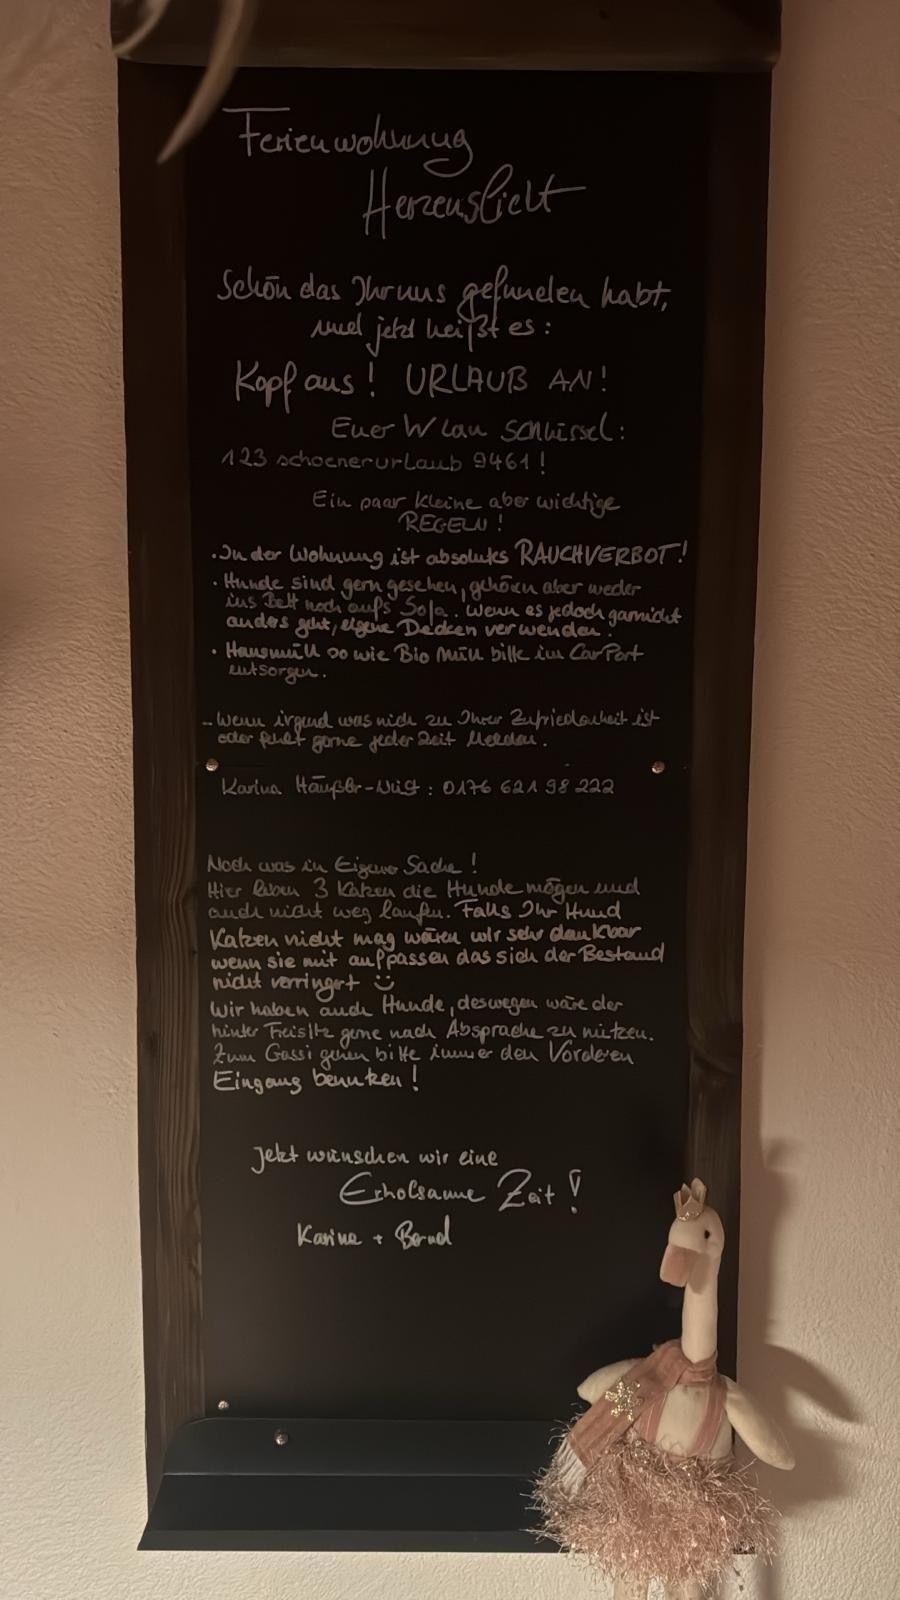 Ferienwohnung
Herzenslicht
Schön das Ihr uns gefunden habt,
und jetzt heißt es:
Kopf aus! URLAUB AN!
Euer W Lan Schlüssel:
123 schoenerurLaub 9461!
Ein paar kleine aber wichtige
REGELN!
· In der Wohnung ist absolutes RAUCHVERBOT!
· Hunde sind gern gesehen, gehören aber weder
ins Bett noch aufs Sofa. Wenn es jedoch garnicht
anders geht, eigene Decken verwenden.
· Hausmüll so wie Bio Müll bitte im CarPort
entsorgen.
– Wenn irgend was nich zu Ihrer Zufriedenheit ist
oder fehlt gerne jeder Zeit Melden.
Karina : 0176 621 98 222
Noch was in Eigener Sache!
Hier leben 3 Katzen die Hunde mögen und
auch nicht weg laufen. Falls Ihr Hund
Katzen nicht mag wären wir sehr dankbar
wenn sie mit aufpassen das sich der Bestand
nicht verringert ☺
Wir haben auch Hunde, deswegen wäre der
hinter Freisitz gerne nach Absprache zu nützen.
Zum Gassi gehen bitte immer den Vorderen
Eingang benutzen!
Jetzt wünschen wir eine
Erholsame Zeit!
Karina + Bernd